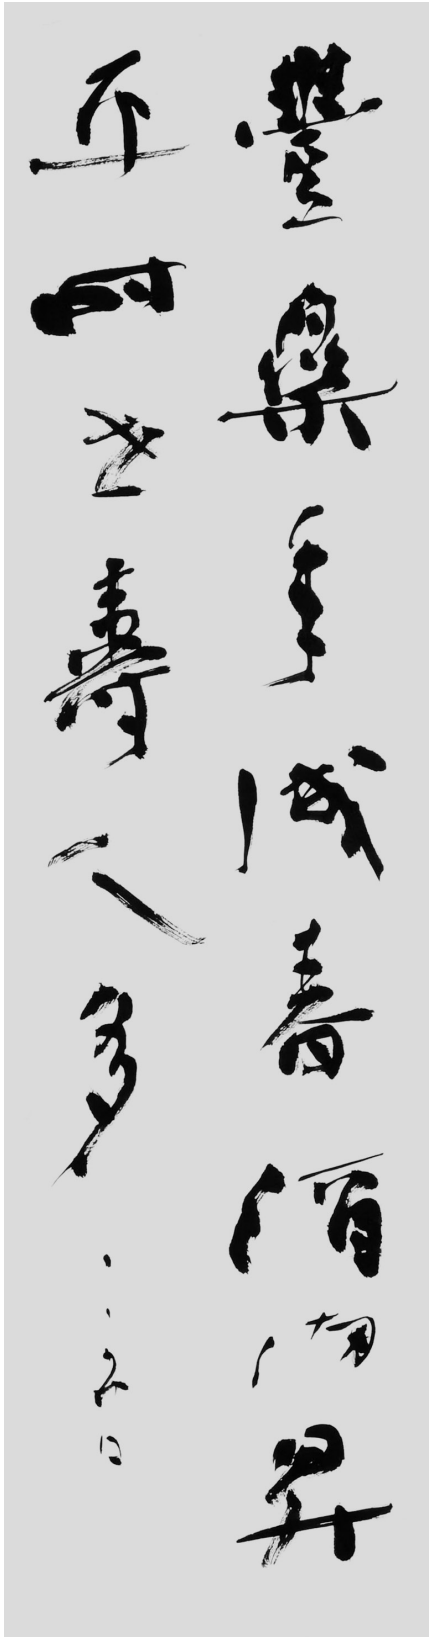 豐樂年成春酒昇
平時世壽人多